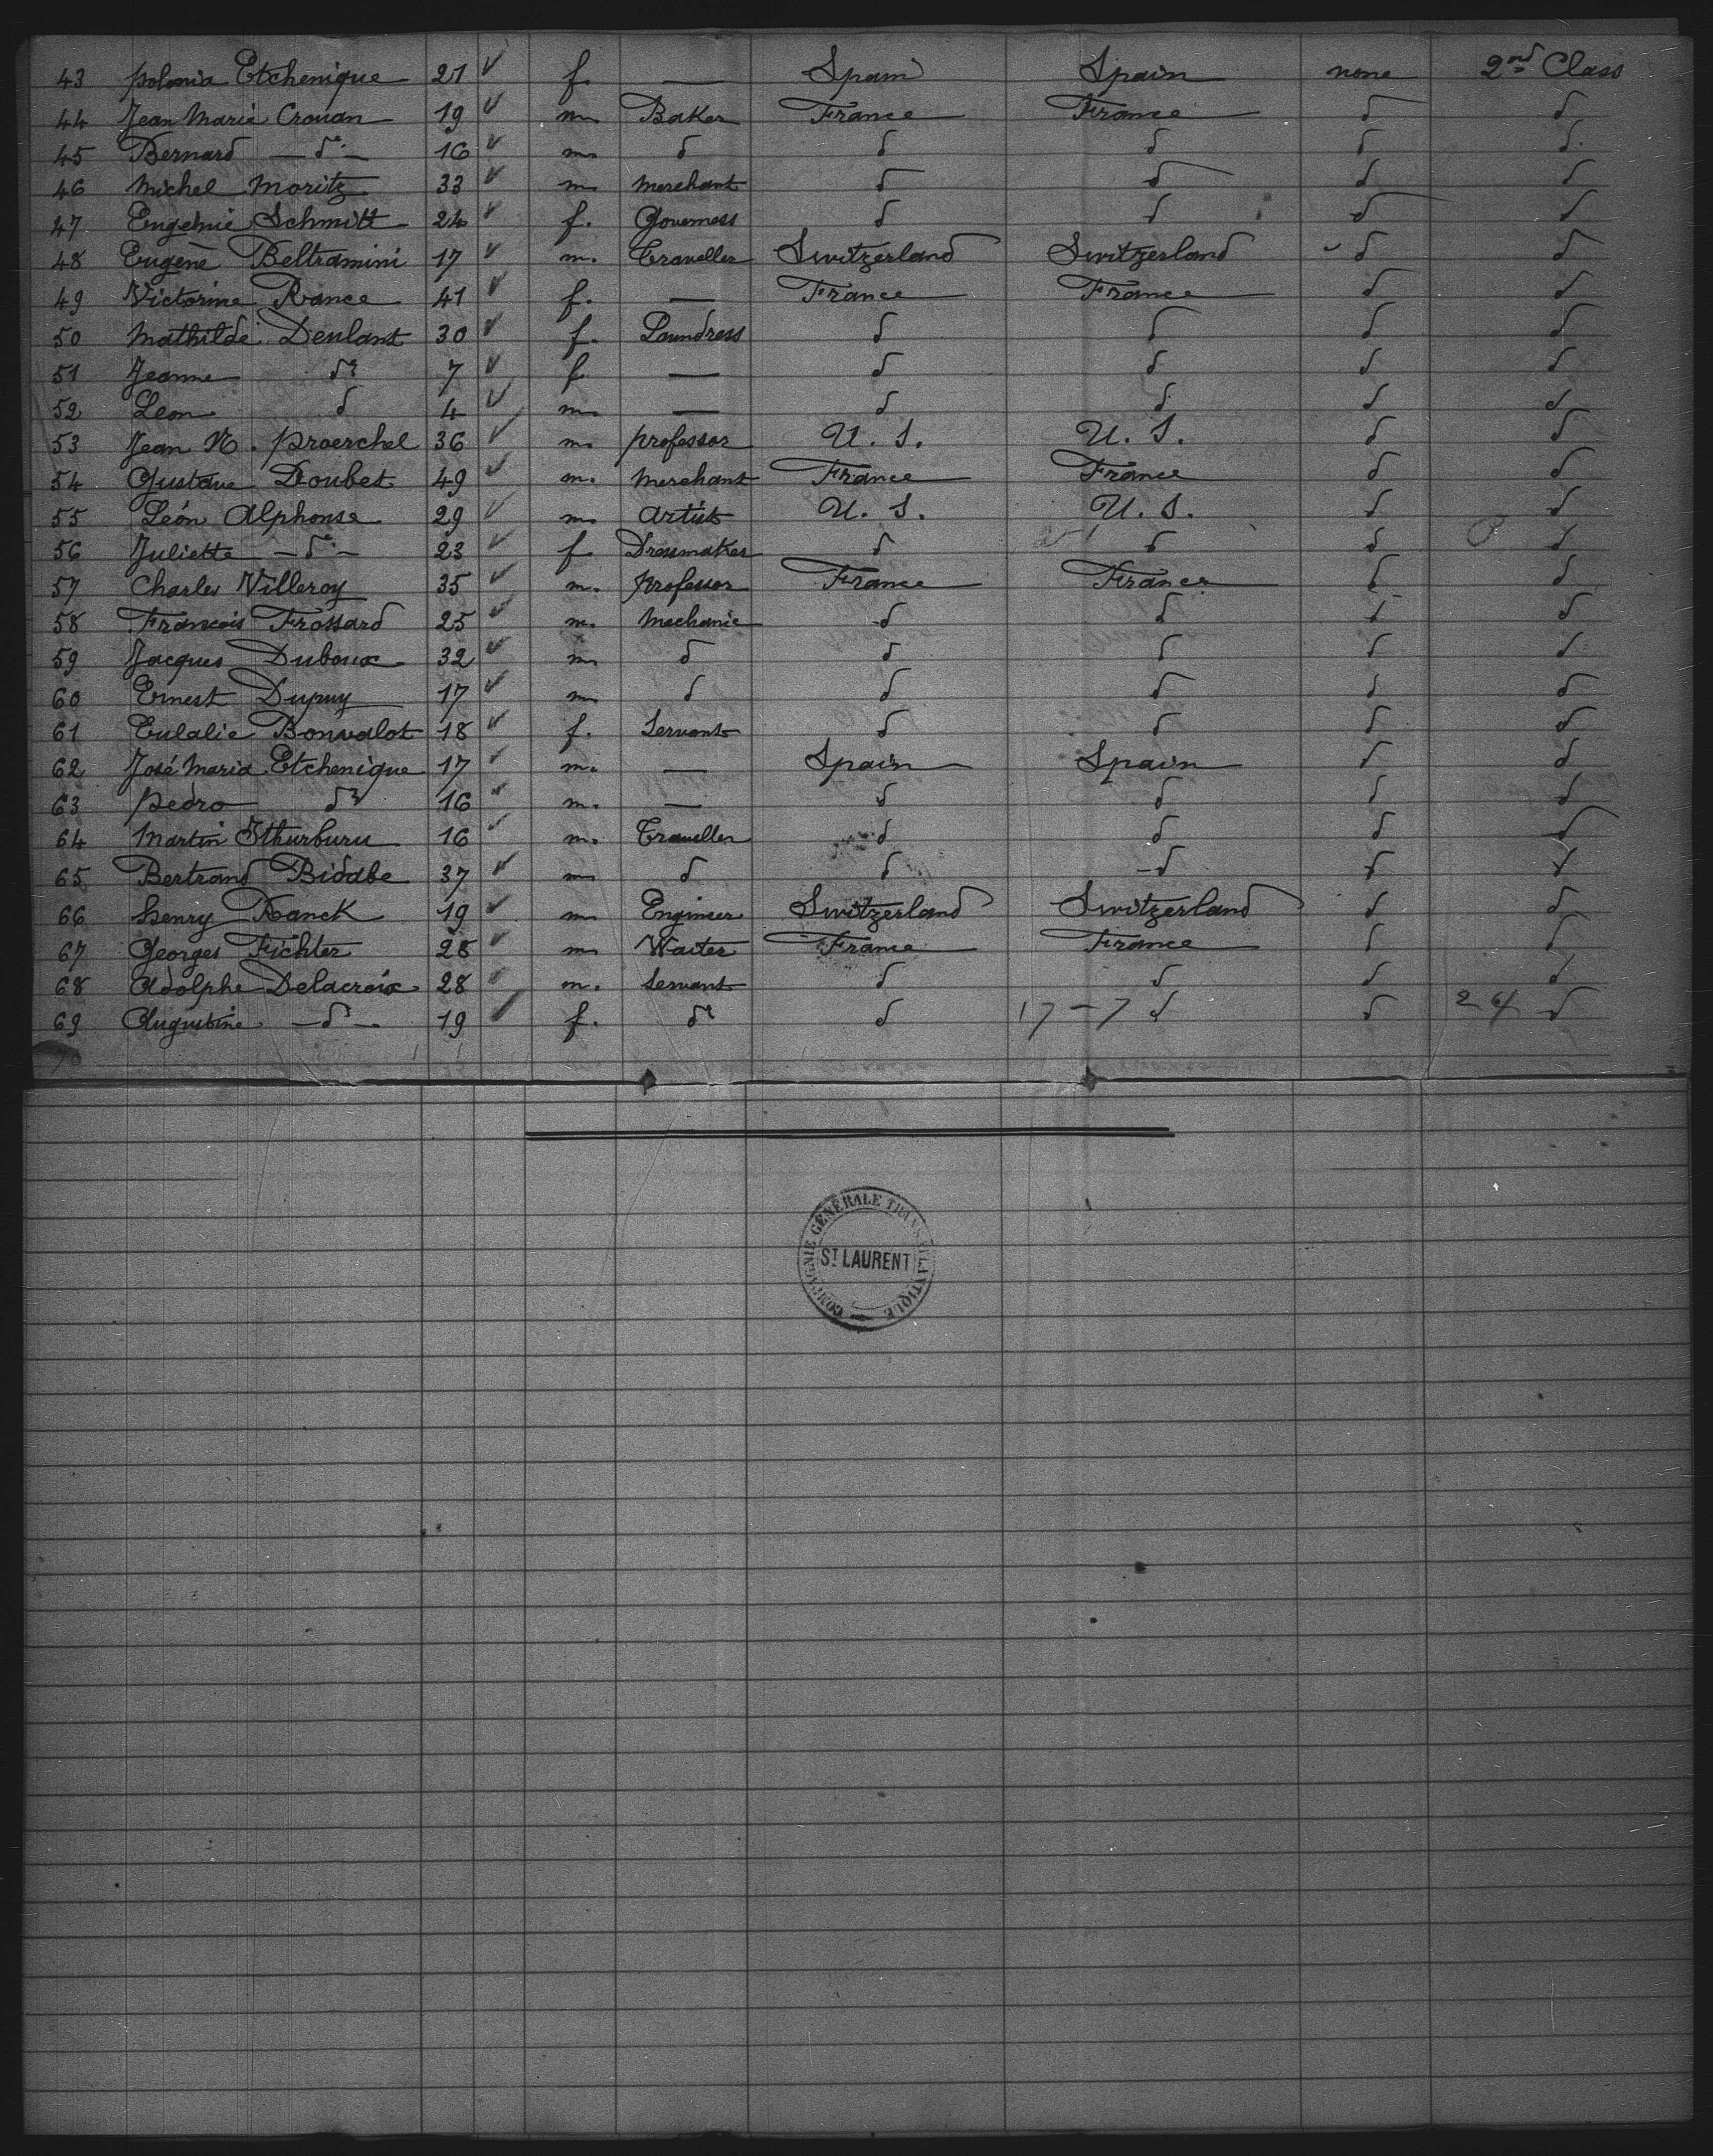 43 Polonia Etchenique 21 f. — Spain Spain none 2nd Class
44 Jean Marie Crouan 19 m. Baker France France d d
45 Bernard — do — 16 m. d d d d d
46 Michel Moritz 33 m. Merchant d d d d
47 Eugénie Schmitt 24 f. Governess d d d d
48 Eugène Beltramini 17 m. Traveller Switzerland Switzerland d d
49 Victorine Rance 41 f. — France France d d
50 Mathilde Denlant 30 f. Laundress d d d d
51 Jeanne do 7 f. — d d d d
52 Leon d 4 m. — d d d d
53 Jean N. Proerchel 36 m. professor U. S. U. S. d d
54 Gustave Doubet 49 m. Merchant France France d d
55 Léon Alphonse 29 m. Artist U. S. U. S. d d
56 Juliette — do — 23 f. Dressmaker d d d d
57 Charles Villeroy 35 m. professor France France d d
58 Francois Frossard 25 m. Mechanic d d d d
59 Jacques Duboux 32 m. d d d d d
60 Ernest Dupuy 17 m. d d d d d
61 Eulalie Bonvalot 18 f. Servant d d d d
62 José Maria Etchenique 17 m. — Spain Spain d d
63 Pedro do 16 m. — d d d d
64 Martin Ithurburu 16 m. Traveller d d d d
65 Bertrand Bidabe 37 m. d d d d d
66 Henry Ranck 19 m. Engineer Switzerland Switzerland d d
67 Georges Fichter 28 m. Waiter France France d d
68 Adolphe Delacroix 28 m. Servant d d d d
69 Augustine — do — 19 f. do d 17 – 7 d d d
70
COMPAGNIE GÉNÉRALE TRANSATLANTIQUE
ST LAURENT